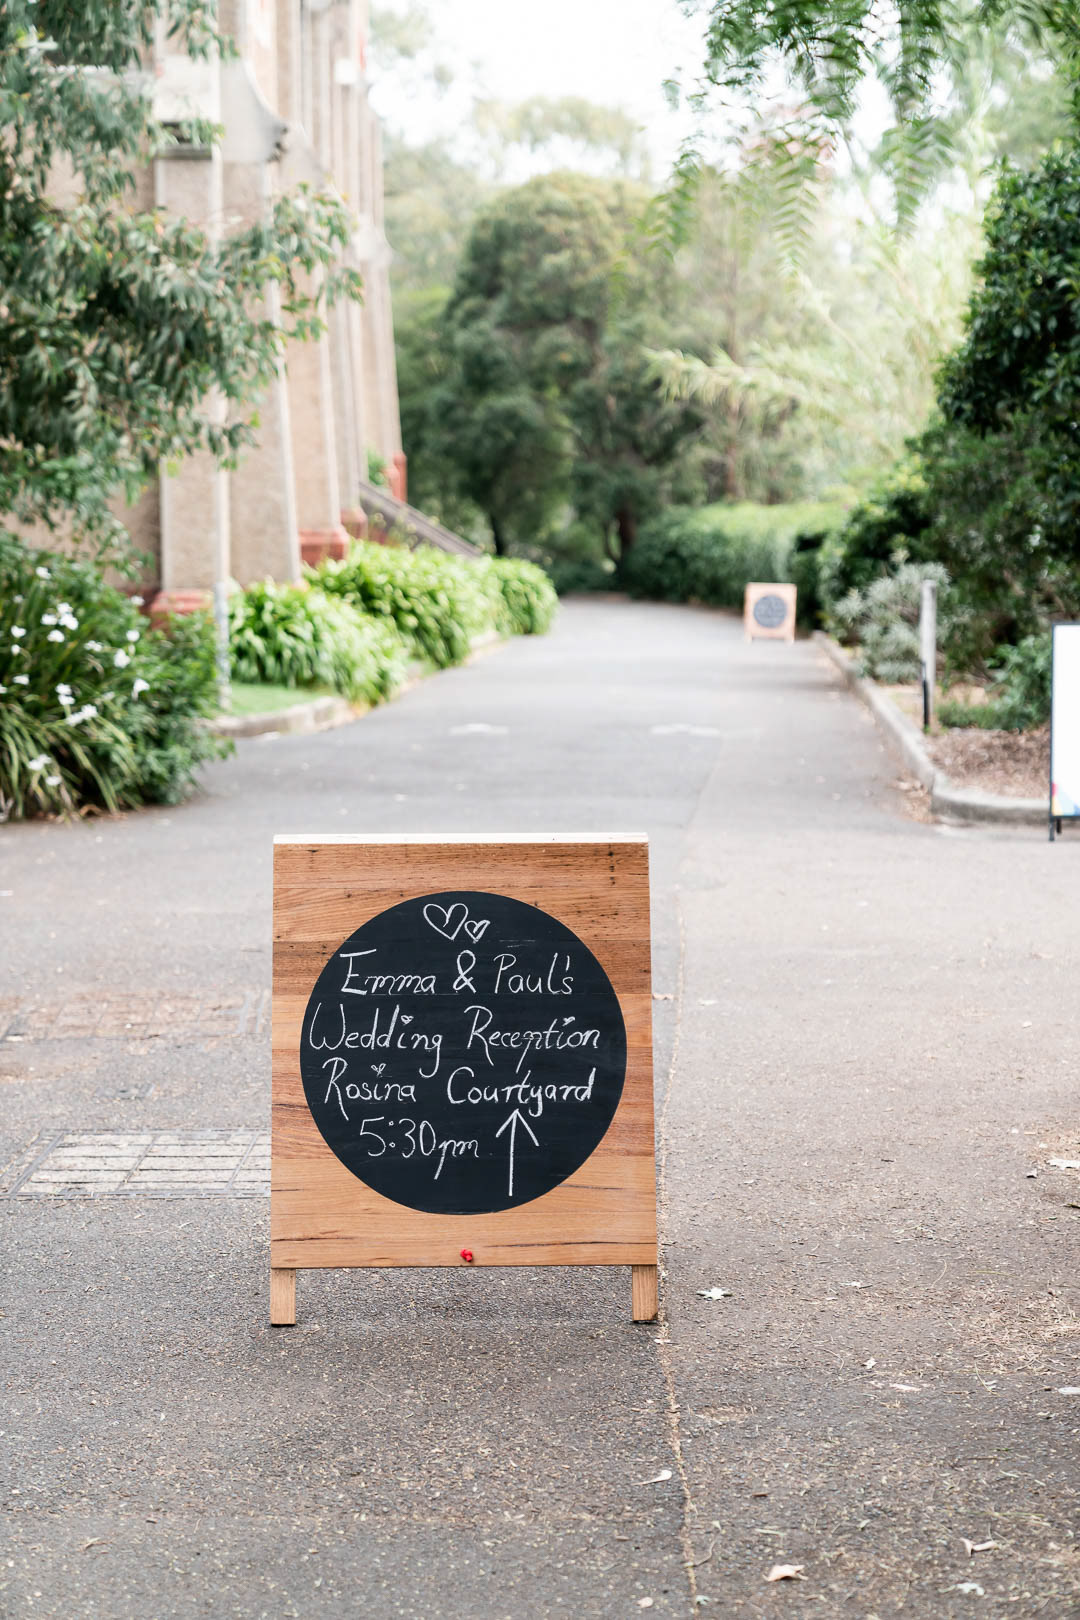 Emma & Paul's
Wedding Reception
Rosina Courtyard
5:30pm